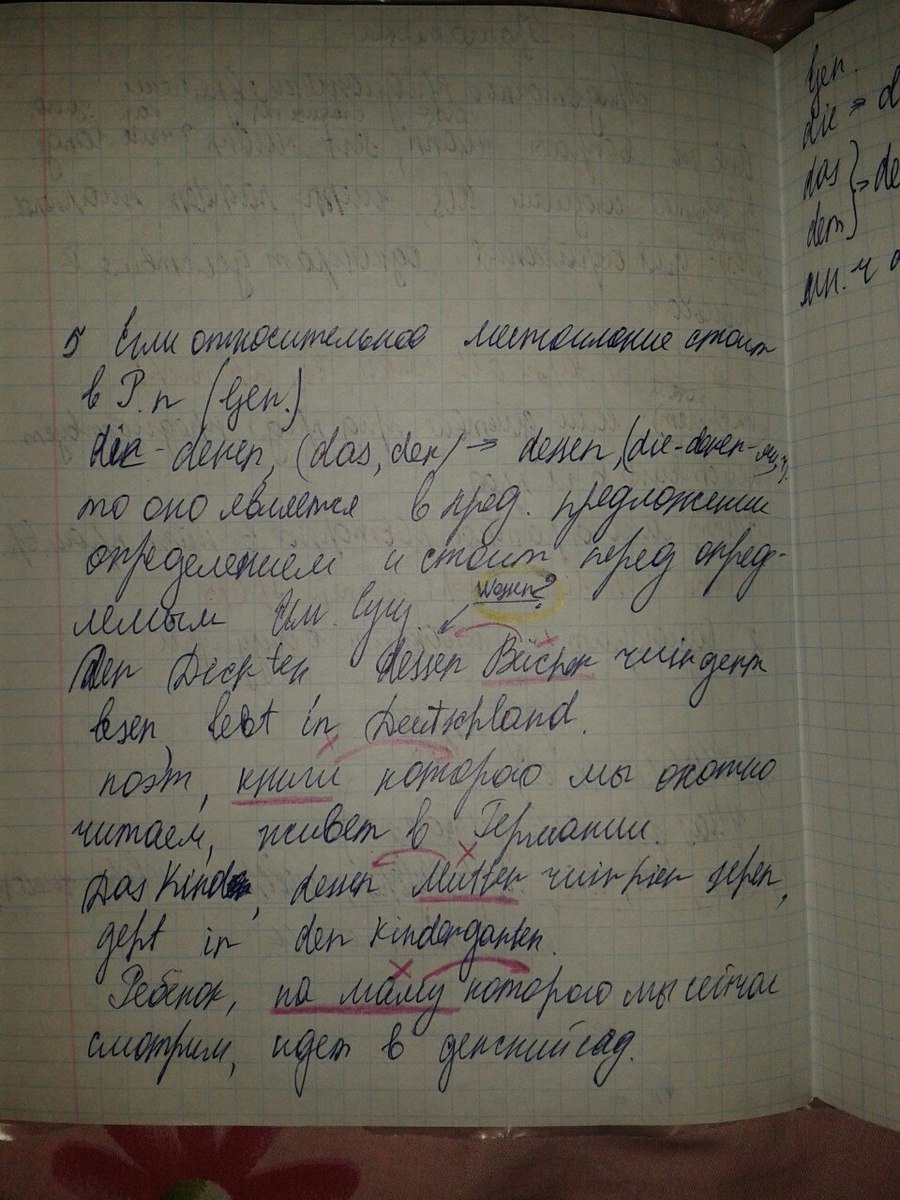 5 Если относительное местоимение стоит
в Р.п (Gen.)
die - deren, (das, der) => dessen, (die-deren-мн.ч)
то оно является в прид. предложении
определением и стоит перед опред-
лемым Им. Сущ.
Wessen?
Der Dichter dessen Bücher wir gern
lesen, lebt in Deutschland.
поэт, книги которого мы охотно
читаем, живет в Германии.
Das Kind, dessen Mutter wir hier sehen,
geht in den Kindergarten.
Ребенок, на маму которого мы сейчас
смотрим, идет в детский сад.
Gen.
die =>
das
dem
мн. ч